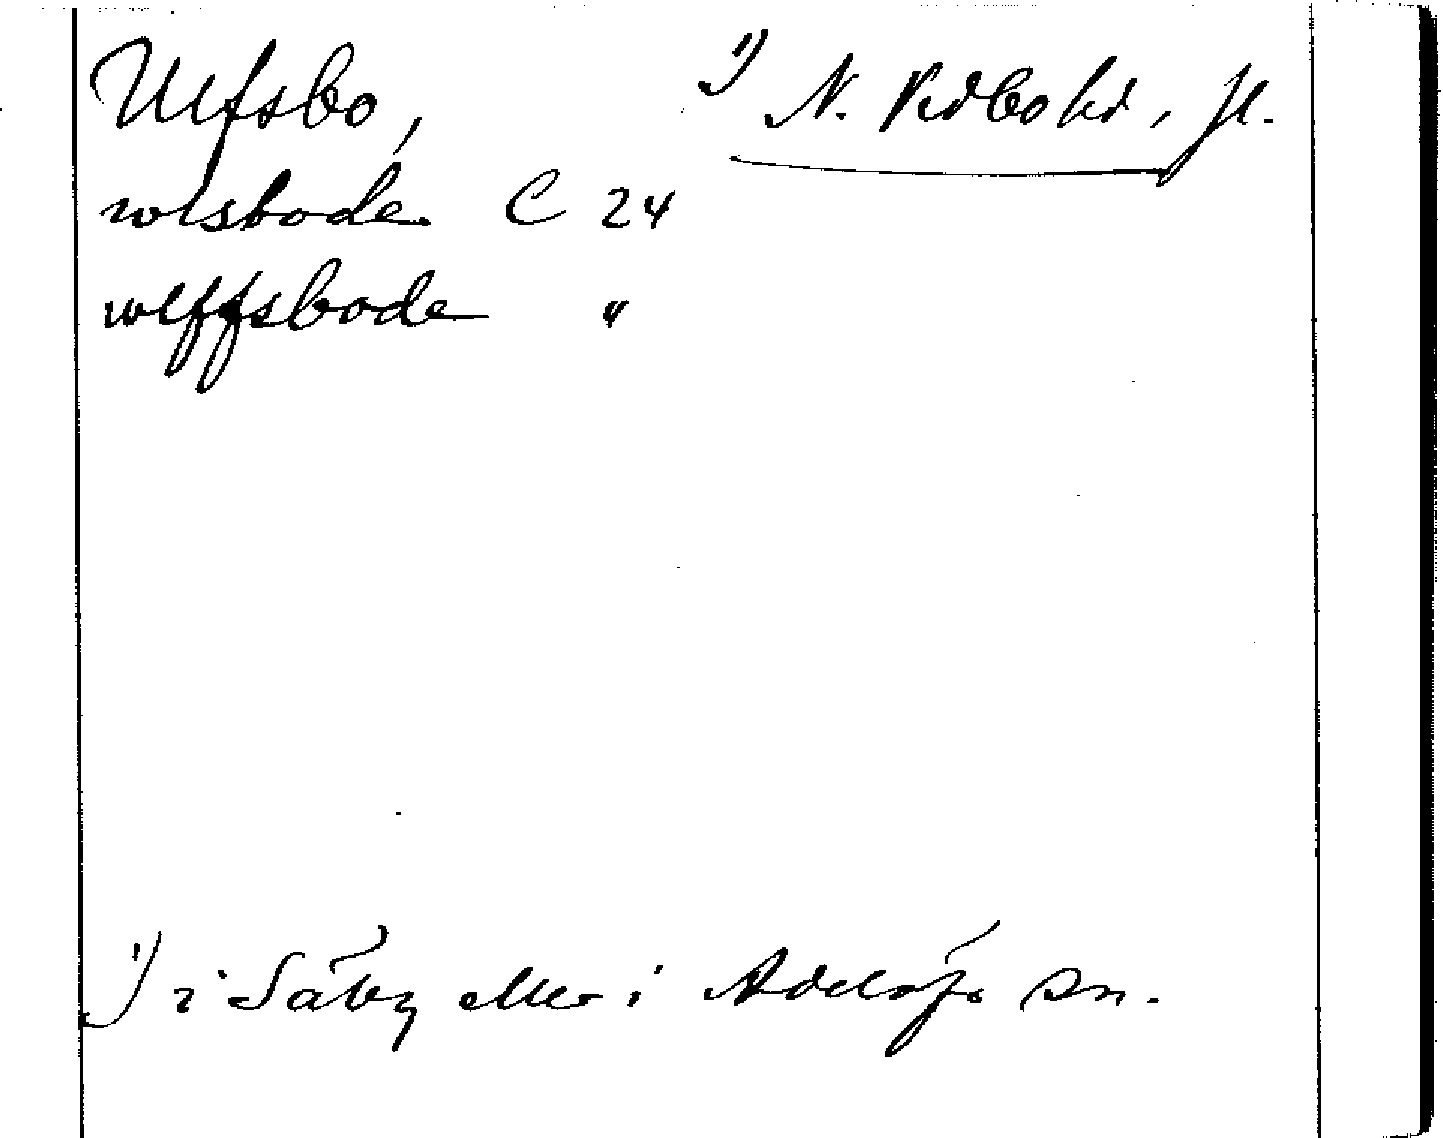 Ulfsbo, 1) N. Vedbo hd, Jl.
wlsbode C 24
wlffsbode "
1) i Säby eller i Adelöfs sn.